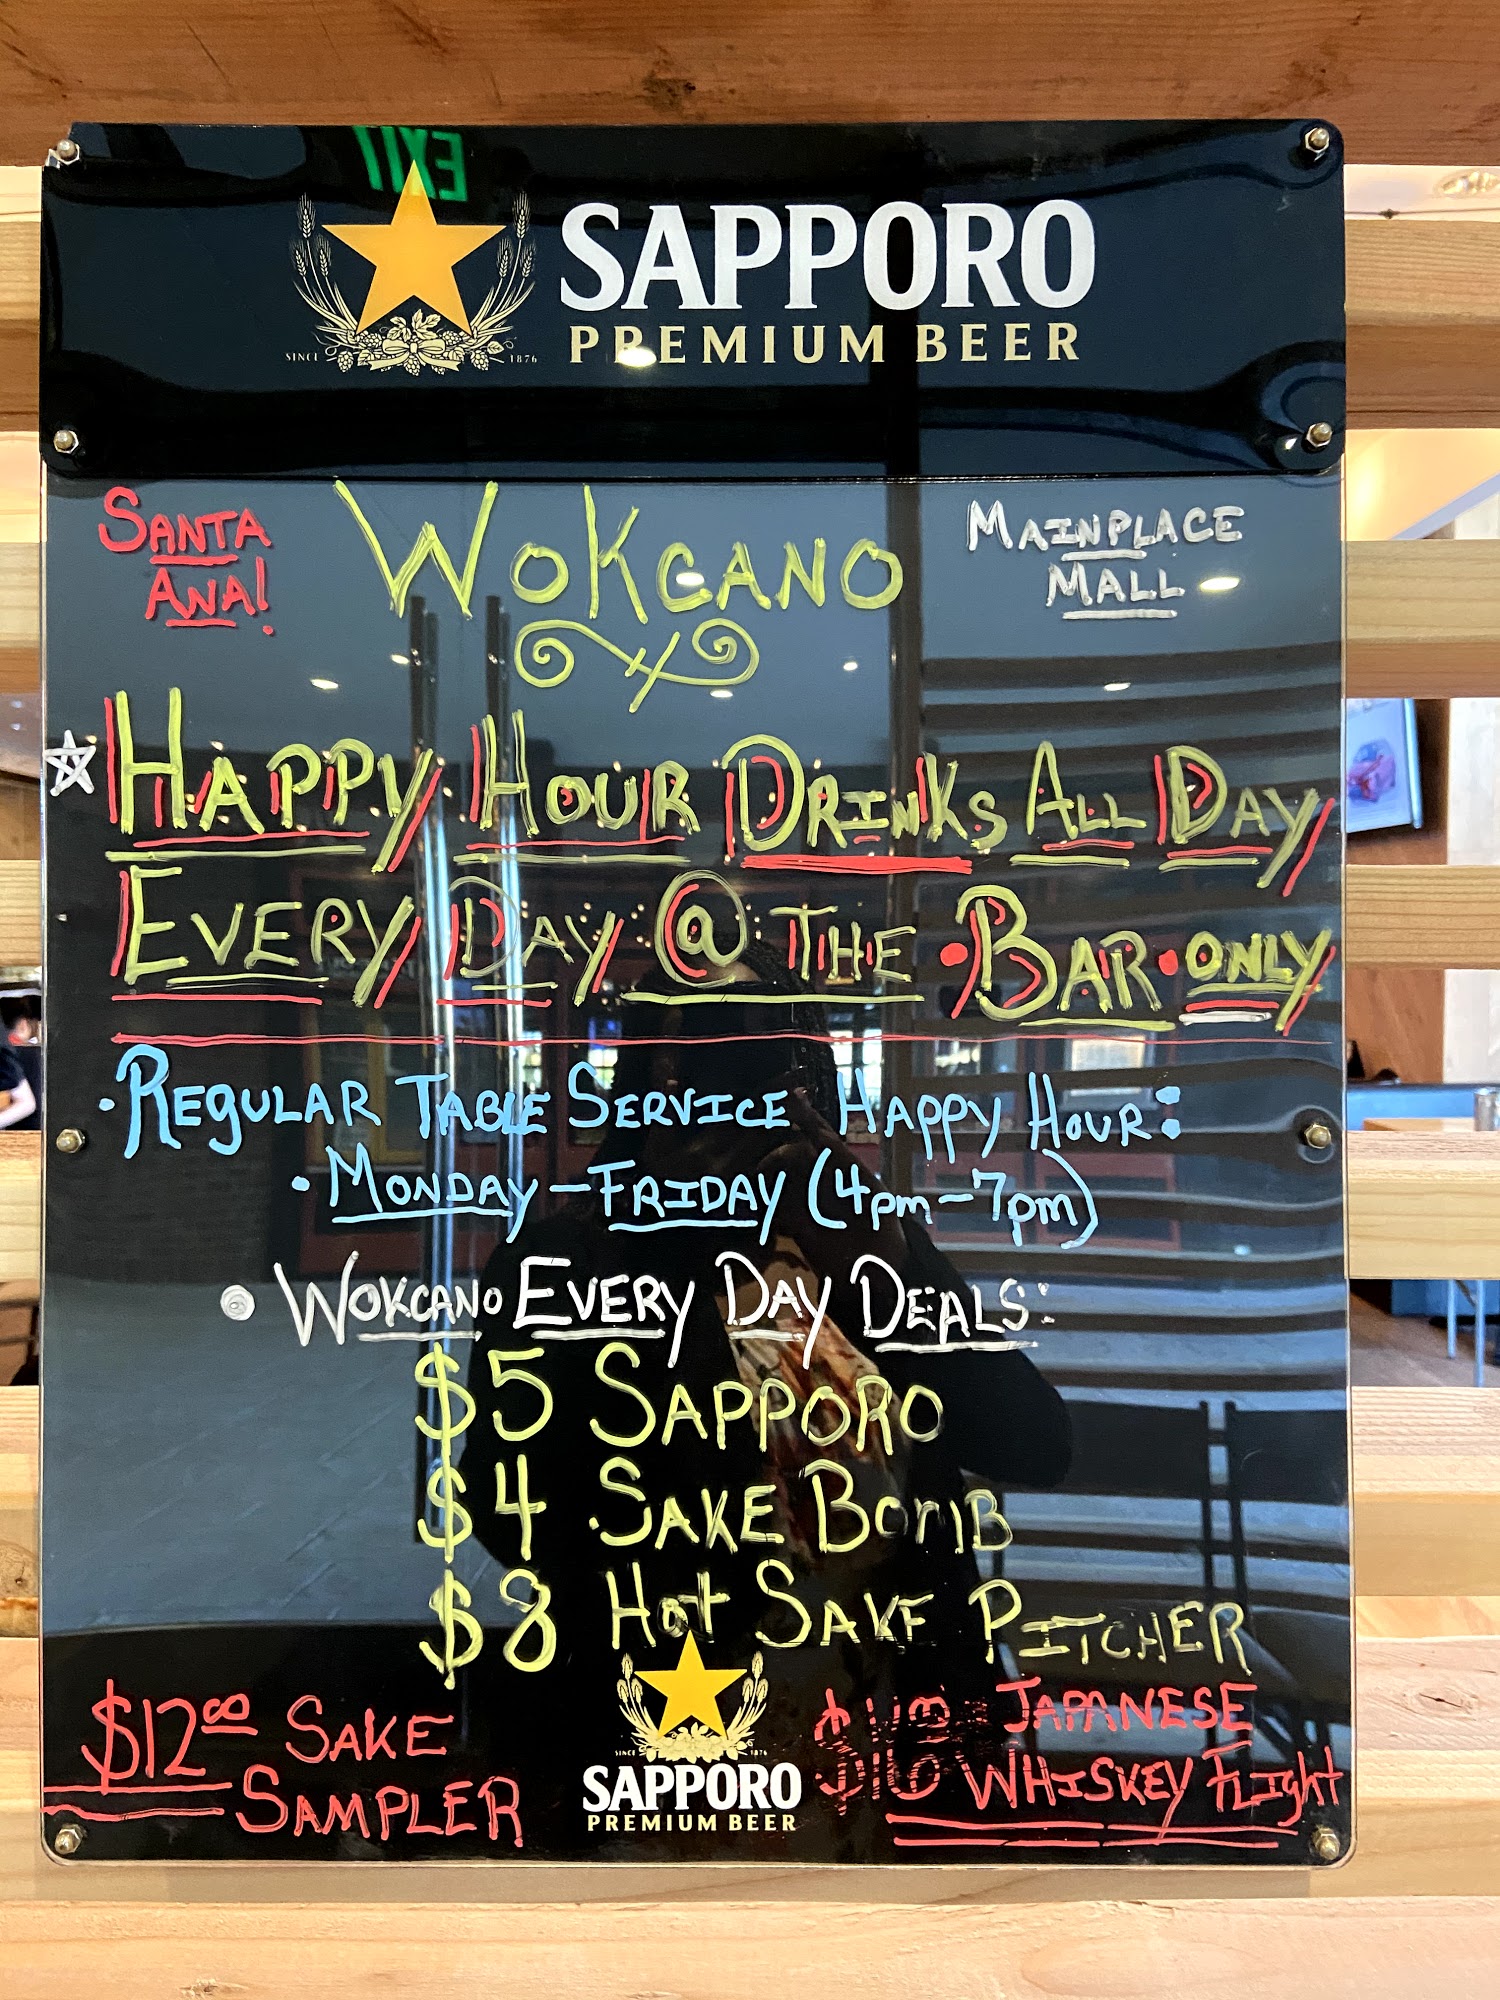 EXIT
SAPPORO
PREMIUM BEER
SINCE 1876
SANTA
ANA!
WOKCANO
MAINPLACE
MALL
HAPPY HOUR DRINKS ALL DAY
EVERY DAY @ THE • BAR • ONLY
• REGULAR TABLE SERVICE HAPPY HOUR:
• MONDAY – FRIDAY (4pm – 7pm)
• WOKCANO EVERY DAY DEALS:
$5 SAPPORO
$4 SAKE BOMB
$8 Hot SAKE PITCHER
$12.00 SAKE
SAMPLER
SINCE 1876
SAPPORO
PREMIUM BEER
JAPANESE
WHISKEY FLIght